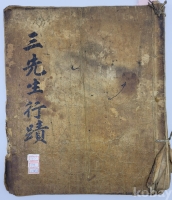 三先生行蹟
kobay